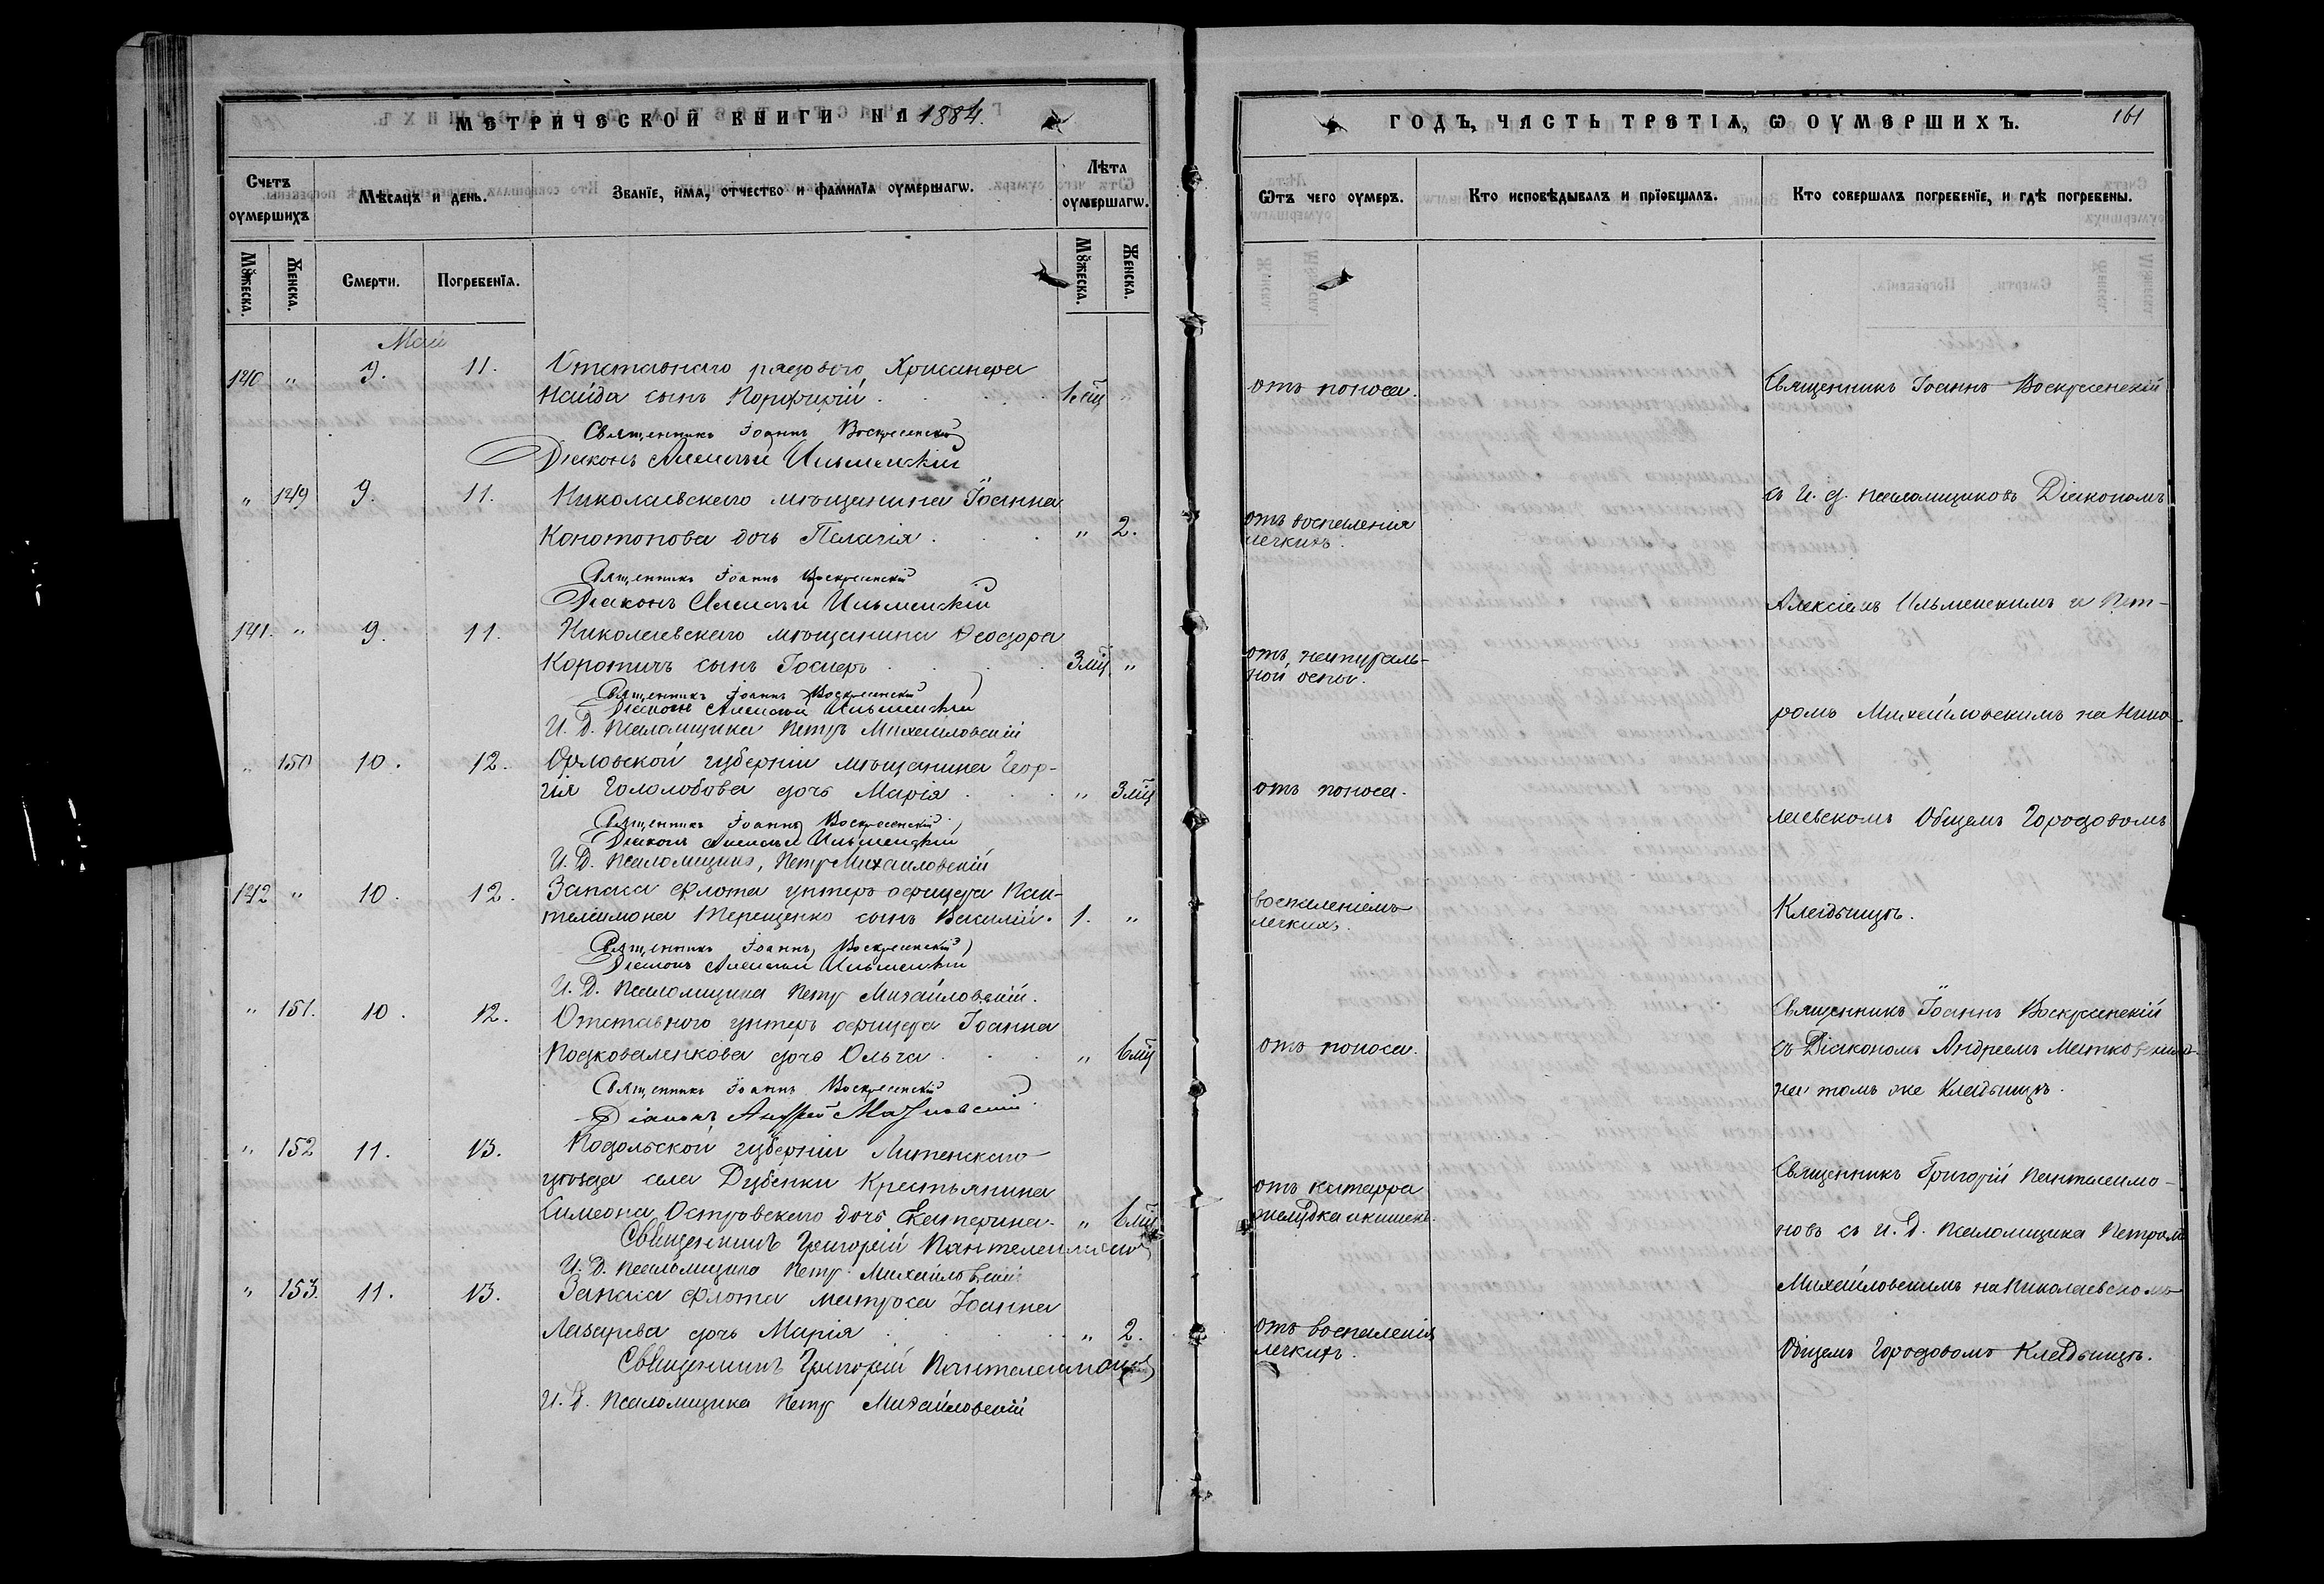 МЕТРИЧЕСКОЙ КНИГИ НА 1884.
Счетъ оумершихъ
Мѣсяцъ и день.
Званіе, имя, отчество и фамилія оумершагw.
Лѣта оумершагw.
Мꙋжеска.
Женска.
Смерти.
Погребенїя.
Мꙋжеска.
Женска.
Май
140 " 9. 11. Отставнаго рядоваго Хрисанфа
Найда сынъ Порфирій
Священникъ Іоаннъ Воскресенскій
Діаконъ Алексѣй Ильменскій
" 149 9. 11. Николаевскаго мѣщанина Іоанна
Конотопова дочь Пелагія . . . " 2.
Священникъ Іоаннъ Воскресенскій
Діаконъ Алексѣй Ильменскій
141. " 9. 11. Николаевскаго мѣщанина Ѳеодора
Коротичъ сынъ Іосифъ . . . 3 мц "
Священникъ Іоаннъ Воскресенскій
Діаконъ Алексѣй Ильменскій
И. Д. Псаломщика Петръ Михайловскій
" 150 10. 12. Орловской губерніи мѣщанина Геор-
гія Гололобова дочь Марія . . . " 3 мц
Священникъ Іоаннъ Воскресенскій
Діаконъ Алексѣй Ильменскій
И. Д. Псаломщика, Петръ Михайловскій
142 " 10. 12. Запаса флота унтеръ офицера Пан-
телеимона Терещенко сынъ Василій. 1. "
Священникъ Іоаннъ Воскресенскій
Діаконъ Алексѣй Ильменскій
И. Д. Псаломщика Петръ Михайловскій.
" 151. 10. 12. Отставного унтеръ офицера Іоанна
Подковаленкова дочь Ольга . . . " 6 мц
Священникъ Іоаннъ Воскресенскій
Діаконъ Андрей Матковскій
" 152 11. 13. Подольской губерніи Литенскаго
уѣзда села Дубенки Крестьянина
Симеона Островскаго дочь Екатерина. " 6 мц
Священникъ Григорій Пантелеимоновъ
И. Д. Псаломщика Петръ Михайловскій
" 153. 11. 13. Запаса флота матроса Іоанна
Лазарева дочь Марія . . . " 2.
Священникъ Григорій Пантелеимоновъ
И. Д. Псаломщика Петръ Михайловскій
ГОДЪ, ЧАСТЬ ТРЕТІЯ, Ѡ ОУМЕРШИХЪ.
161
Ѿтъ чего оумеръ.
Кто исповѣдывалъ и прїобщалъ.
Кто совершалъ погребенїе, и гдѣ погребены.
отъ поноса.
отъ воспаленія
легкихъ.
отъ натураль-
ной оспы.
отъ поноса.
воспаленіемъ
легкихъ.
отъ поноса.
отъ катарра
желудка и кишекъ.
отъ воспаленія
легкихъ.
Священникъ Іоаннъ Воскресенскій
съ И. д. псаломщиковъ Діакономъ
Алексіемъ Ильменскимъ и Пет-
ромъ Михайловскимъ на Нико-
лаевскомъ Общемъ Городовомъ
Кладбищѣ.
Священникъ Іоаннъ Воскресенскій
съ Діакономъ Андреемъ Матковскимъ
на томъ же Кладбищѣ.
Священникъ Григорій Пантелеимо-
новъ съ И. Д. Псаломщика Петромъ
Михайловскимъ на Николаевскомъ
Общемъ Городовомъ Кладбищѣ.